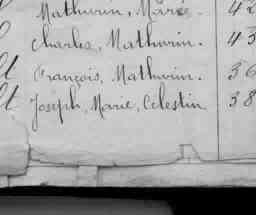 Mathurin, Marie. 42
Charles, Mathurin. 43
François, Mathurin. 36
Joseph, Marie, Celestin 38